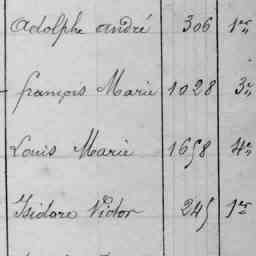 Adolphe André 306 1er
françois Marie 1028 3e
Louis Marie 1658 4e
Isidore Victor 245 1er